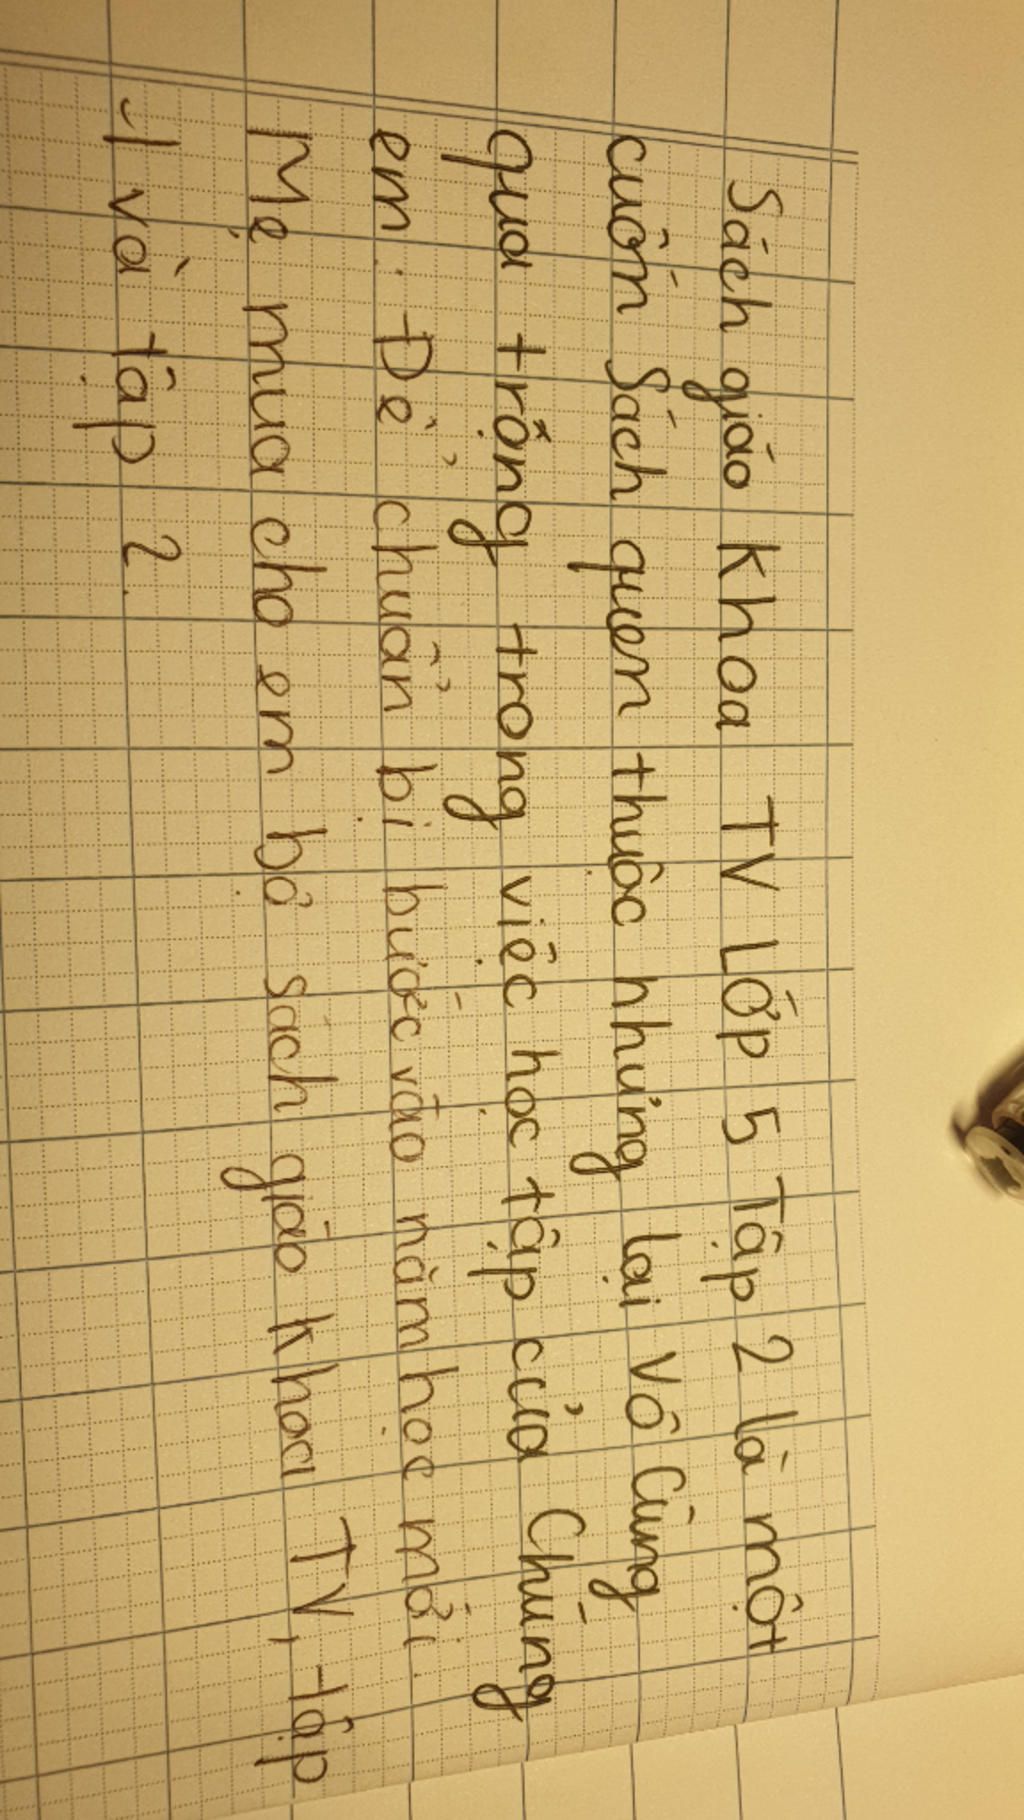 Sách giáo Khoa TV Lớp 5 Tập 2 là một
cuốn Sách quen thuộc nhưng lại vô Cùng
qua trộng trong việc học tập của Chúng
em. Để chuẩn bị bước vào năm học mới.
Mẹ mua cho em bộ sách giáo khoa TV, tập
1 và tập 2.